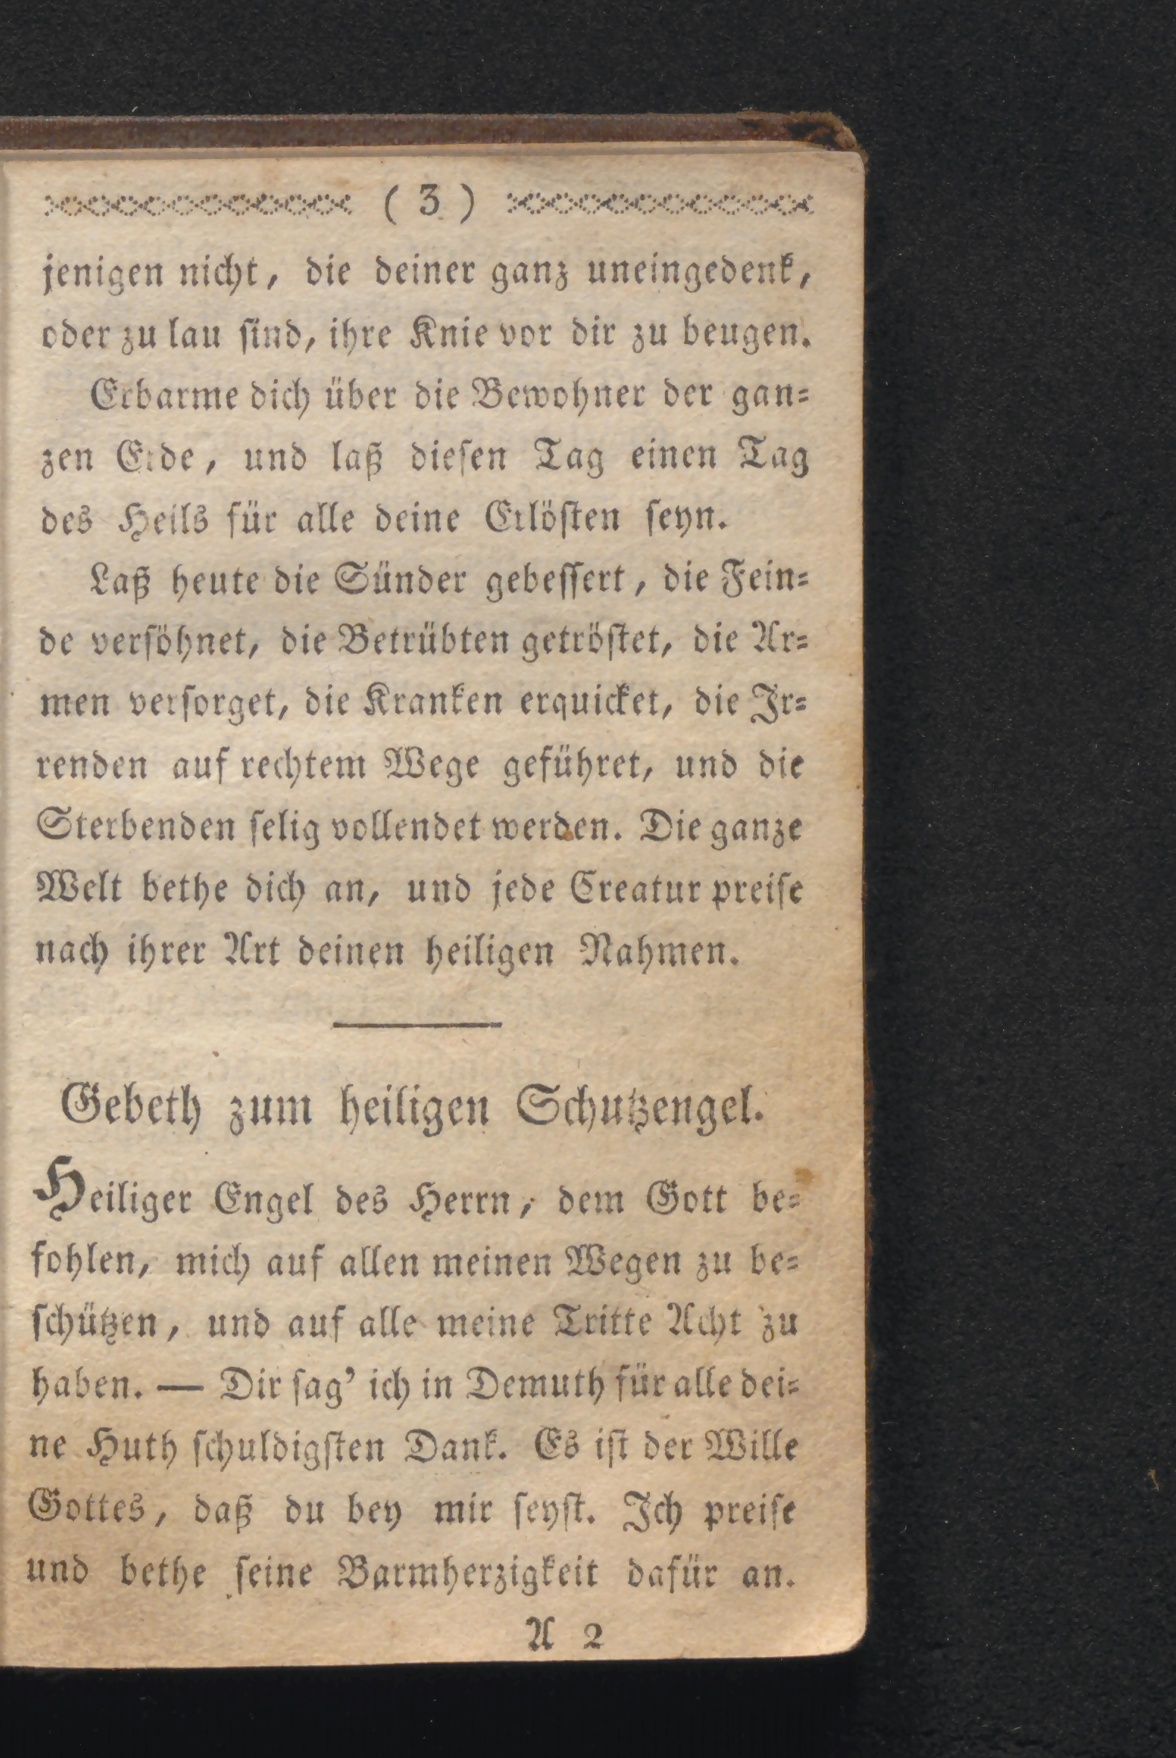 ( 3 )
jenigen nicht, die deiner ganz uneingedenk,
oder zu lau ſind, ihre Knie vor dir zu beugen.
Erbarme dich über die Bewohner der gan⸗
zen Erde, und laß dieſen Tag einen Tag
des Heils für alle deine Erlöſten ſeyn.
Laß heute die Sünder gebeſſert, die Fein⸗
de verſöhnet, die Betrübten getröſtet, die Ar⸗
men verſorget, die Kranken erquicket, die Ir⸗
renden auf rechtem Wege geführet, und die
Sterbenden ſelig vollendet werden. Die ganze
Welt bethe dich an, und jede Creatur preiſe
nach ihrer Art deinen heiligen Nahmen.
Gebeth zum heiligen Schutzengel.
Heiliger Engel des Herrn, dem Gott be⸗
fohlen, mich auf allen meinen Wegen zu be⸗
ſchützen, und auf alle meine Tritte Acht zu
haben. — Dir ſag' ich in Demuth für alle dei⸗
ne Huth ſchuldigſten Dank. Es iſt der Wille
Gottes, daß du bey mir ſeyſt. Ich preiſe
und bethe ſeine Barmherzigkeit dafür an.
A 2